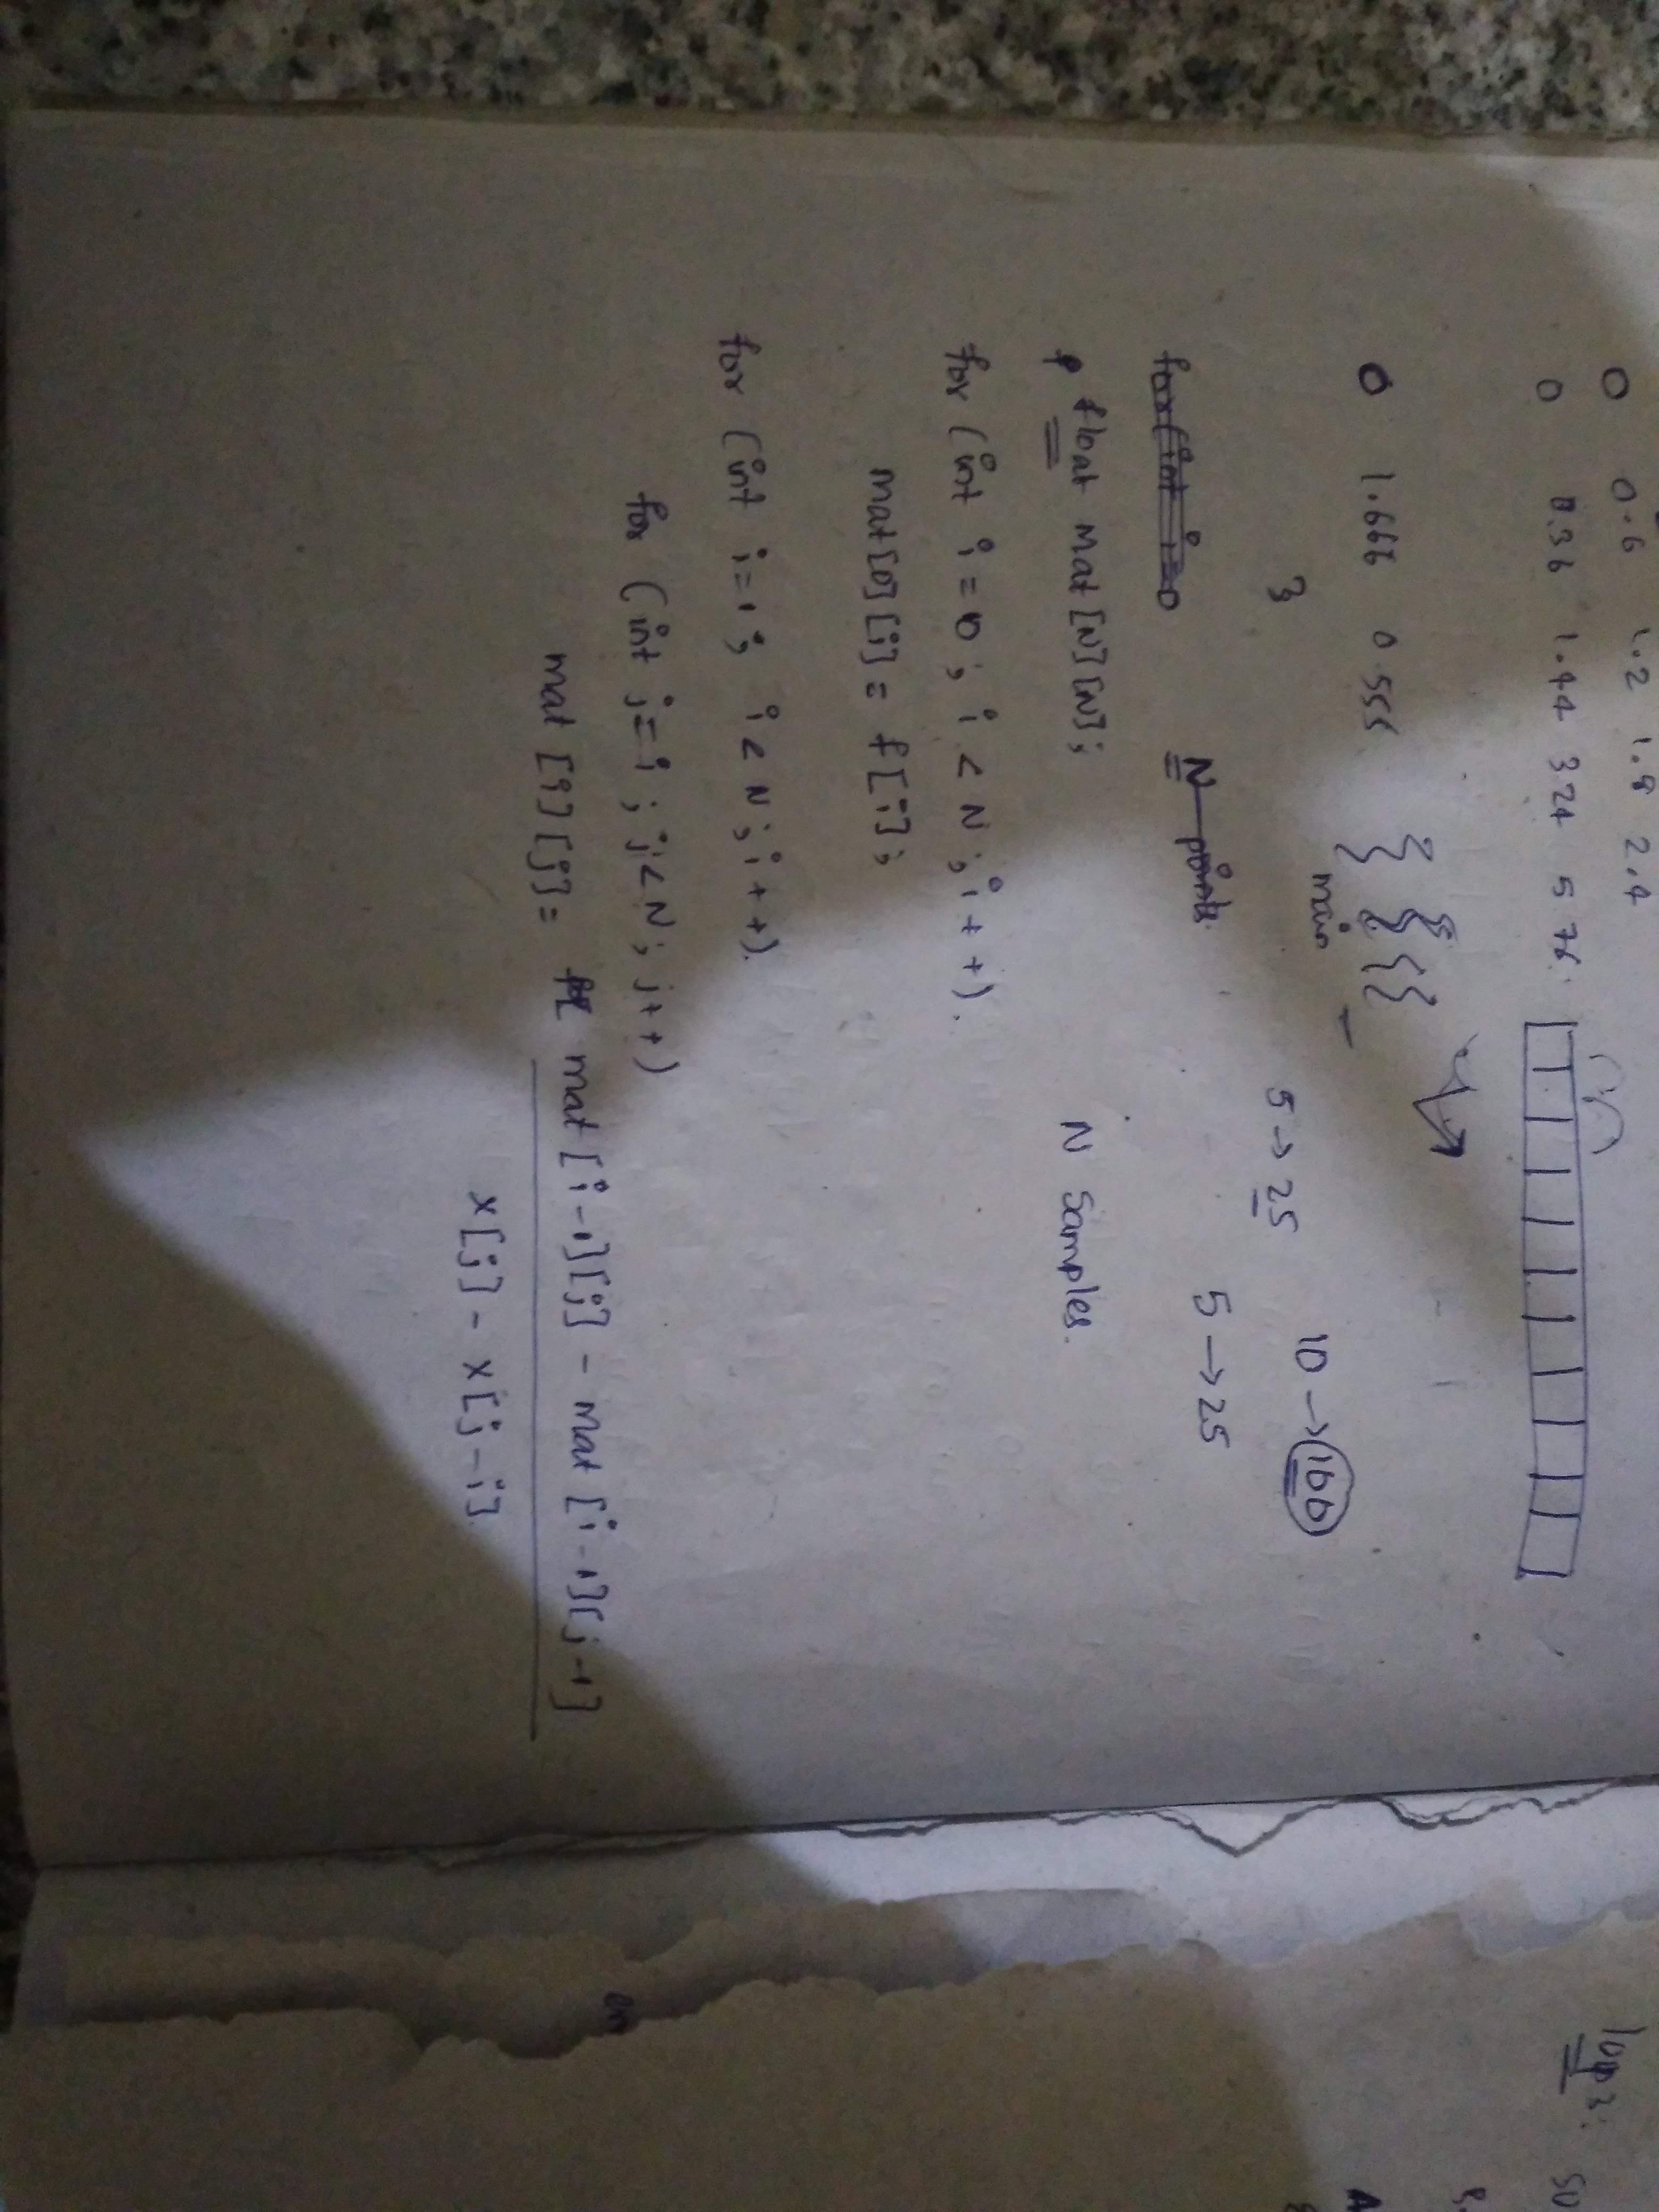 0 0.6 1.2 1.8 2.4
0 0.36 1.44 324 5 76
0 1.666 0.555
main
5 → 25
10 → 100
}
for(int i=0
N points.
5 → 25
float mat[N][N];
N samples.
for (int i = 0; i < N; i++).
mat[0][i] = f[i];
for (int i=1; i < N; i++).
for (int j=i; j<N; j++)
mat [i][j] = mat[i-1][j] - mat[i-1][j-1]
x[j] - x[j-i].